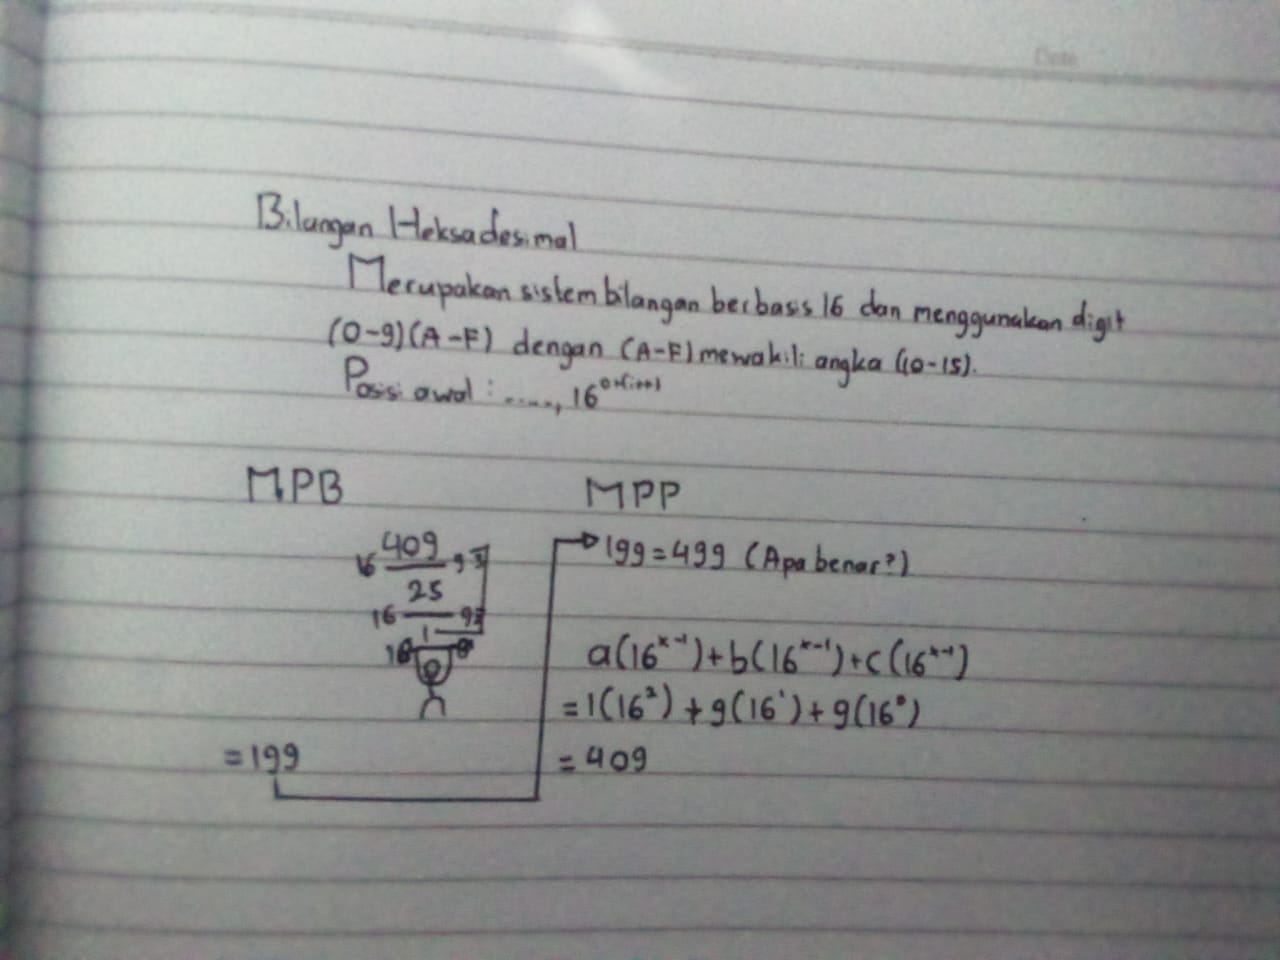 Date
Bilangan Heksadesimal
Merupakan sistem bilangan berbasis 16 dan menggunakan digit
(0-9)(A-F) dengan (A-F) mewakili angka (10-15).
Posisi awal : ....., 16
MPB
MPP
409
16 9
25
16 9
1
16
= 199
199 = 499 (Apa benar?)
a(16ˣ⁻¹)+b(16ˣ⁻¹)+c(16ˣ⁻¹)
= 1(16²) + 9(16¹) + 9(16⁰)
= 409